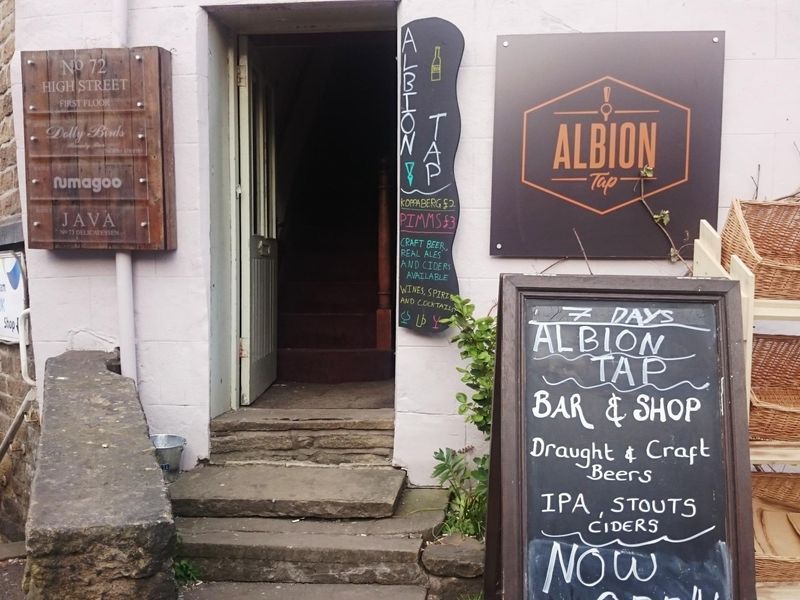 No 72
HIGH STREET
FIRST FLOOR
Dolly Birds
rumagoo
JAVA
No 73 DELICATESSEN
ALBION
TAP
KOPPABERG £2
PIMMS £3
CRAFT BEER,
REAL ALES
AND CIDERS
AVAILABLE
WINES, SPIRI
AND COCKTAILS
ALBION
Tap
7 DAYS
ALBION
TAP
BAR & SHOP
Draught & Craft
Beers
IPA, STOUTS
CIDERS
NOW
OPEN
Shop